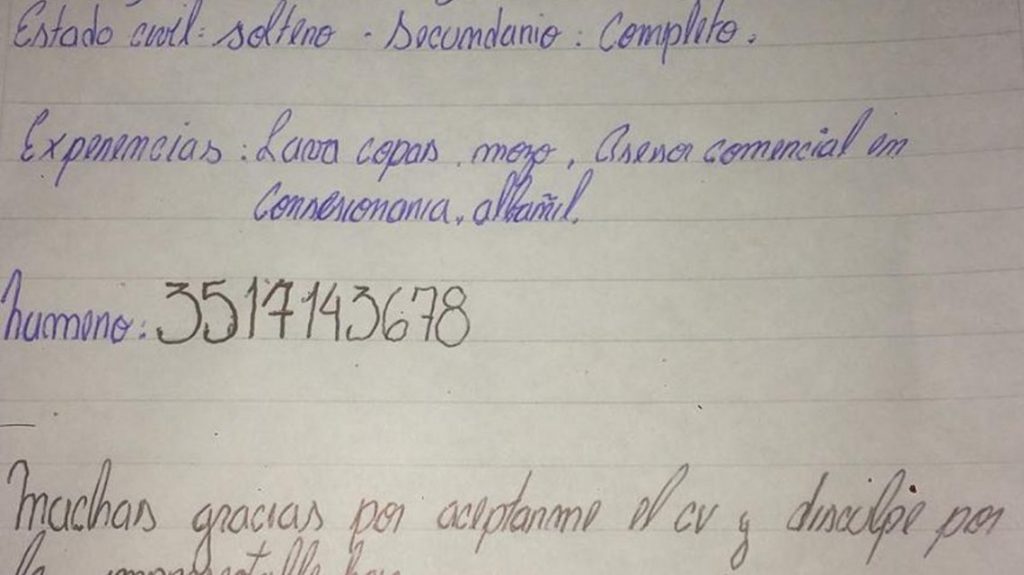 Estado civil: soltero - Secundario: Completo.
Experiencias: Lava copas, mozo, Asesor comercial en
Consesionaria, albañil.
Numero: 3517143678
Muchas gracias por aceptarme el cv y disculpe por